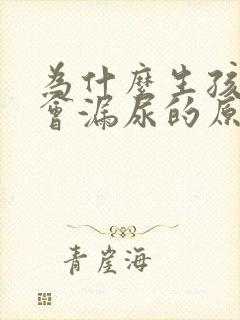 為什麼生孩
會漏尿的原
青崖海